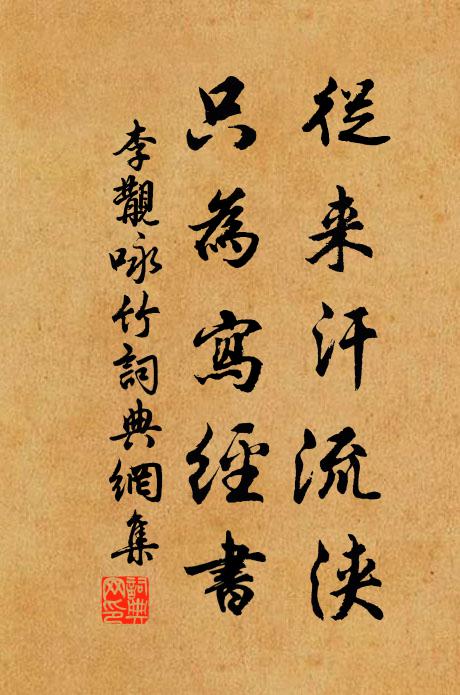 從来汗流浹
只為寫經書
李觀咏竹詞典網集
詞典網印